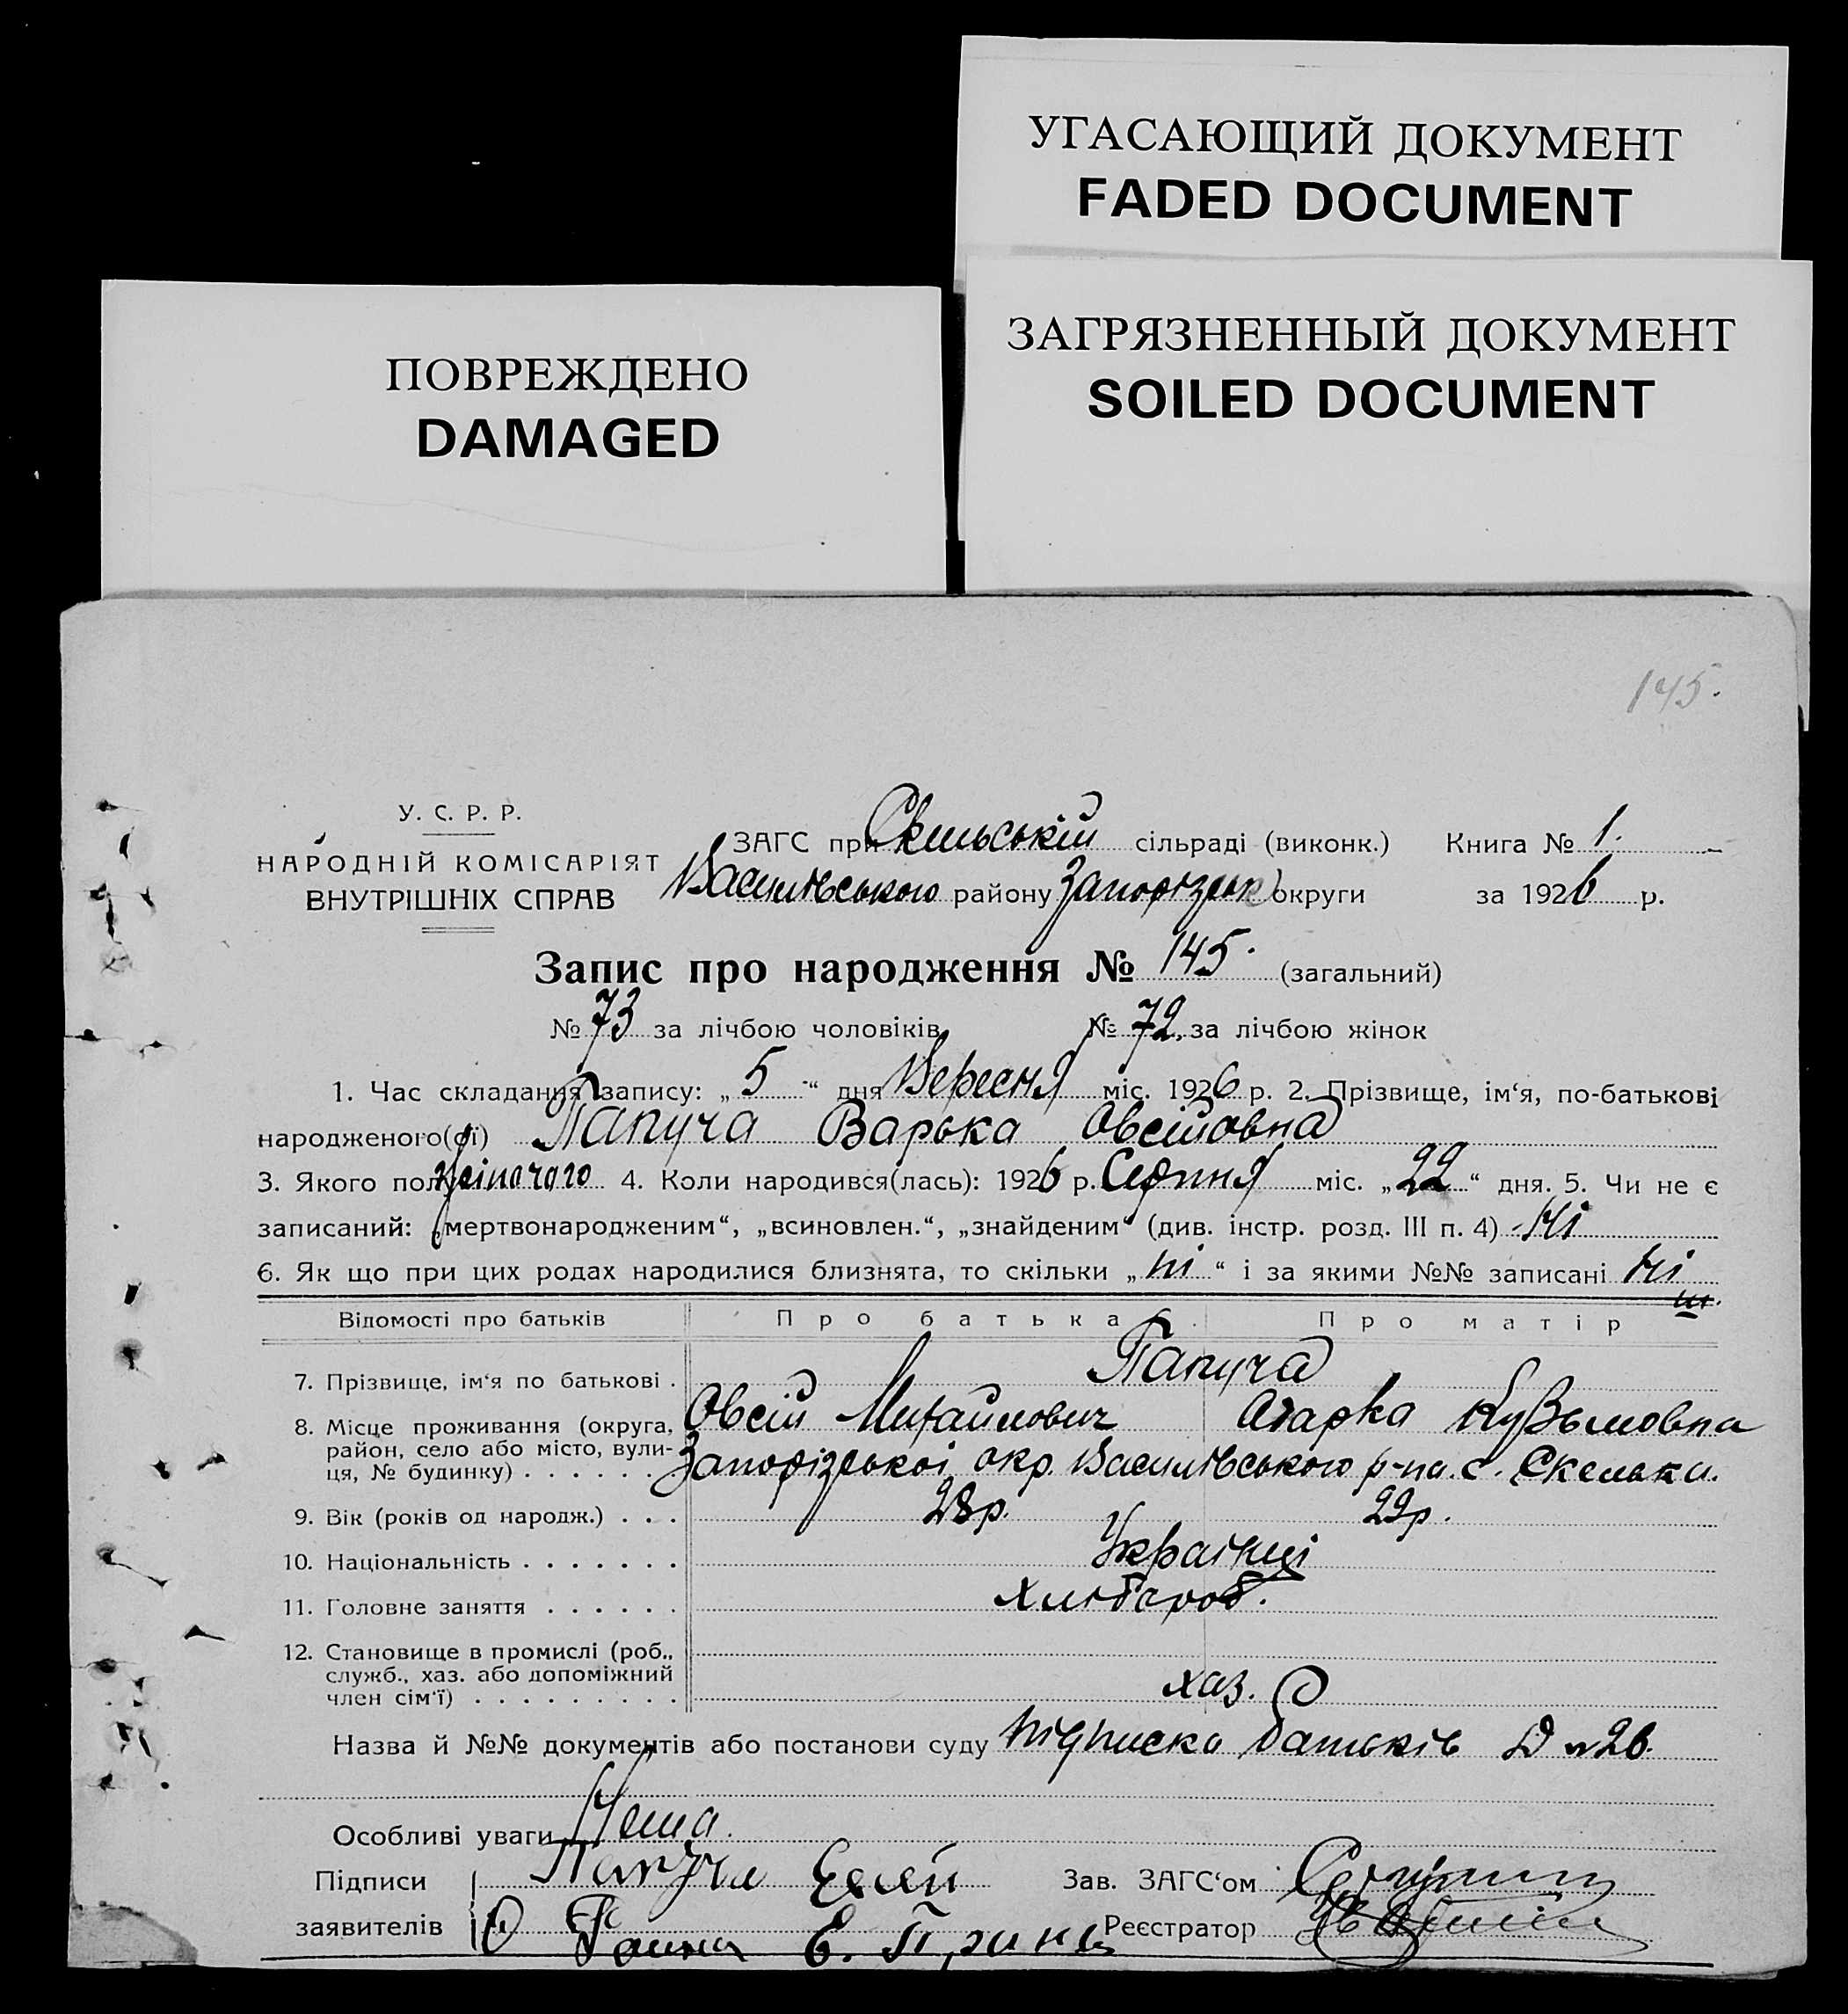 УГАСАЮЩИЙ ДОКУМЕНТ
FADED DOCUMENT
ЗАГРЯЗНЕННЫЙ ДОКУМЕНТ
SOILED DOCUMENT
ПОВРЕЖДЕНО
DAMAGED
145.
У. С. Р. Р.
НАРОДНІЙ КОМІСАРІЯТ
ВНУТРІШНІХ СПРАВ
ЗАГС при Скельській сільраді (виконк.) Книга № 1.
Василівського району Запорізськ округи за 1926 р.
Запис про народження № 145. (загальний)
№ 73 за лічбою чоловіків № 72. за лічбою жінок
1. Час складання запису: „5“ дня Вересня міс. 1926 р. 2. Прізвище, ім‘я, по-батькові
народженого(ої) Папуча Варька Овсійовна
3. Якого полу жіночого 4. Коли народився(лась): 1926 р. Серпня міс. „22“ дня. 5. Чи не є
записаний: „мертвонародженим“, „всиновлен.“, „знайденим“ (див. інстр. розд. III п. 4) - Ні
6. Як що при цих родах народилися близнята, то скільки „ні“ і за якими №№ записані ні
Відомості про батьків Про батька Про матір
7. Прізвище, ім‘я по батькові . Папуча
Овсій Михайлович Одарка Кузьмовна
8. Місце проживання (округа,
район, село або місто, вули-
ця, № будинку) . . . . . . Запорізської окр. Василівського р-на. с. Скелька.
9. Вік (років од народж.) . . . 28р. 29р.
10. Національність . . . . . . . Українці
11. Головне заняття . . . . . . Хлібороб.
12. Становище в промислі (роб.,
служб., хаз. або допоміжний
член сім‘ї) . . . . . . . . . хаз.
Назва й №№ документів або постанови суду підписка батьків
Особливі уваги Нема.
Підписи Папуча Зав. ЗАГС‘ом
заявителів Реєстратор